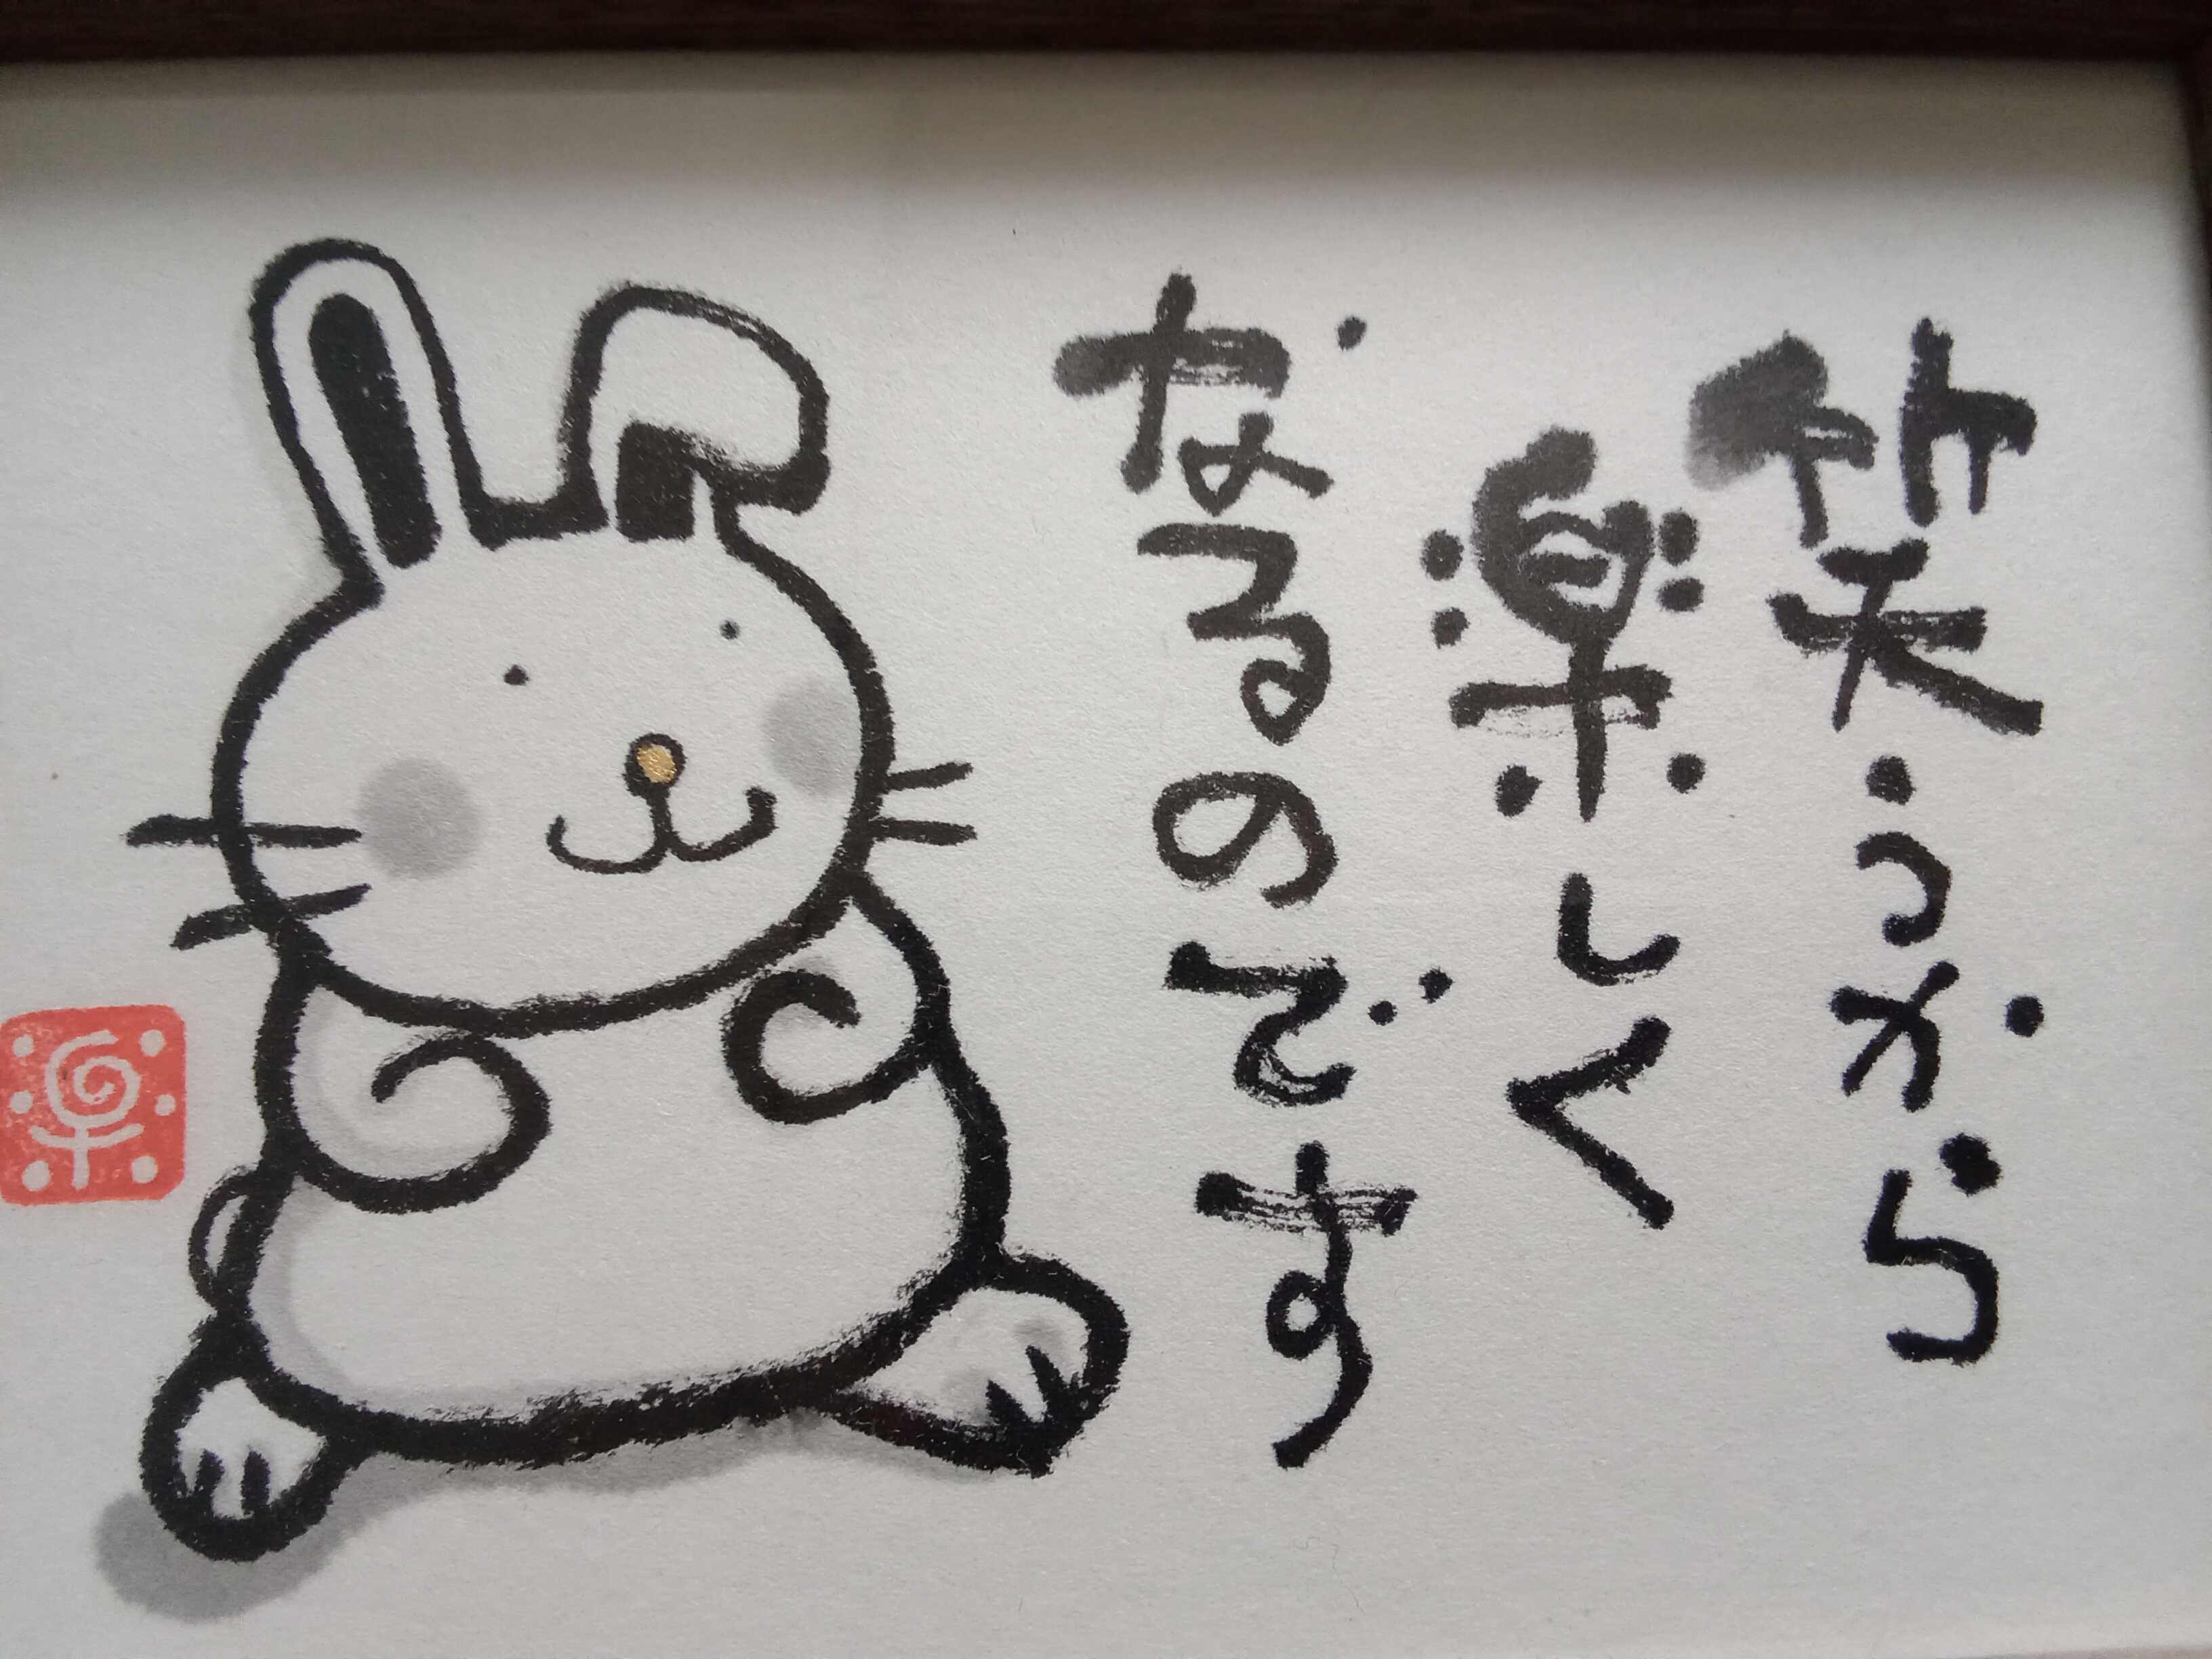 笑うから
楽しく
なるのです
楽